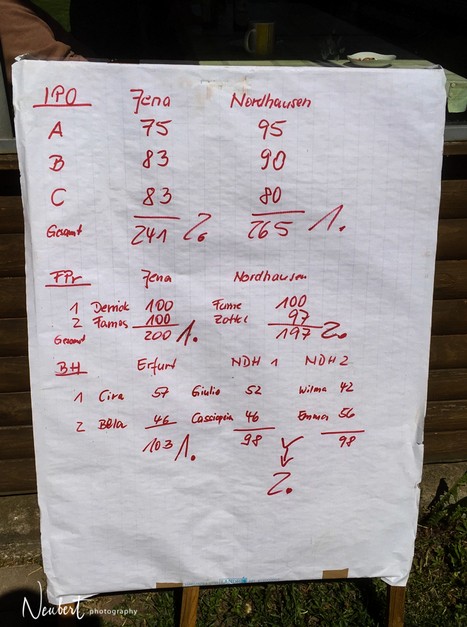 IPO Jena Nordhausen
A 75 95
B 83 90
C 83 80
Gesamt 241 2. 265 1.
FPr Jena Nordhausen
1 Derrick 100 Fume 100
2 Famos 100 Zottel 97
Gesamt 200 1. 197 2.
BH Erfurt NDH 1 NDH 2
1 Cira 57 Giulio 52 Wilma 42
2 Bela 46 Cassiopeia 46 Emma 56
103 1. 98 98
2.
Neubert photography